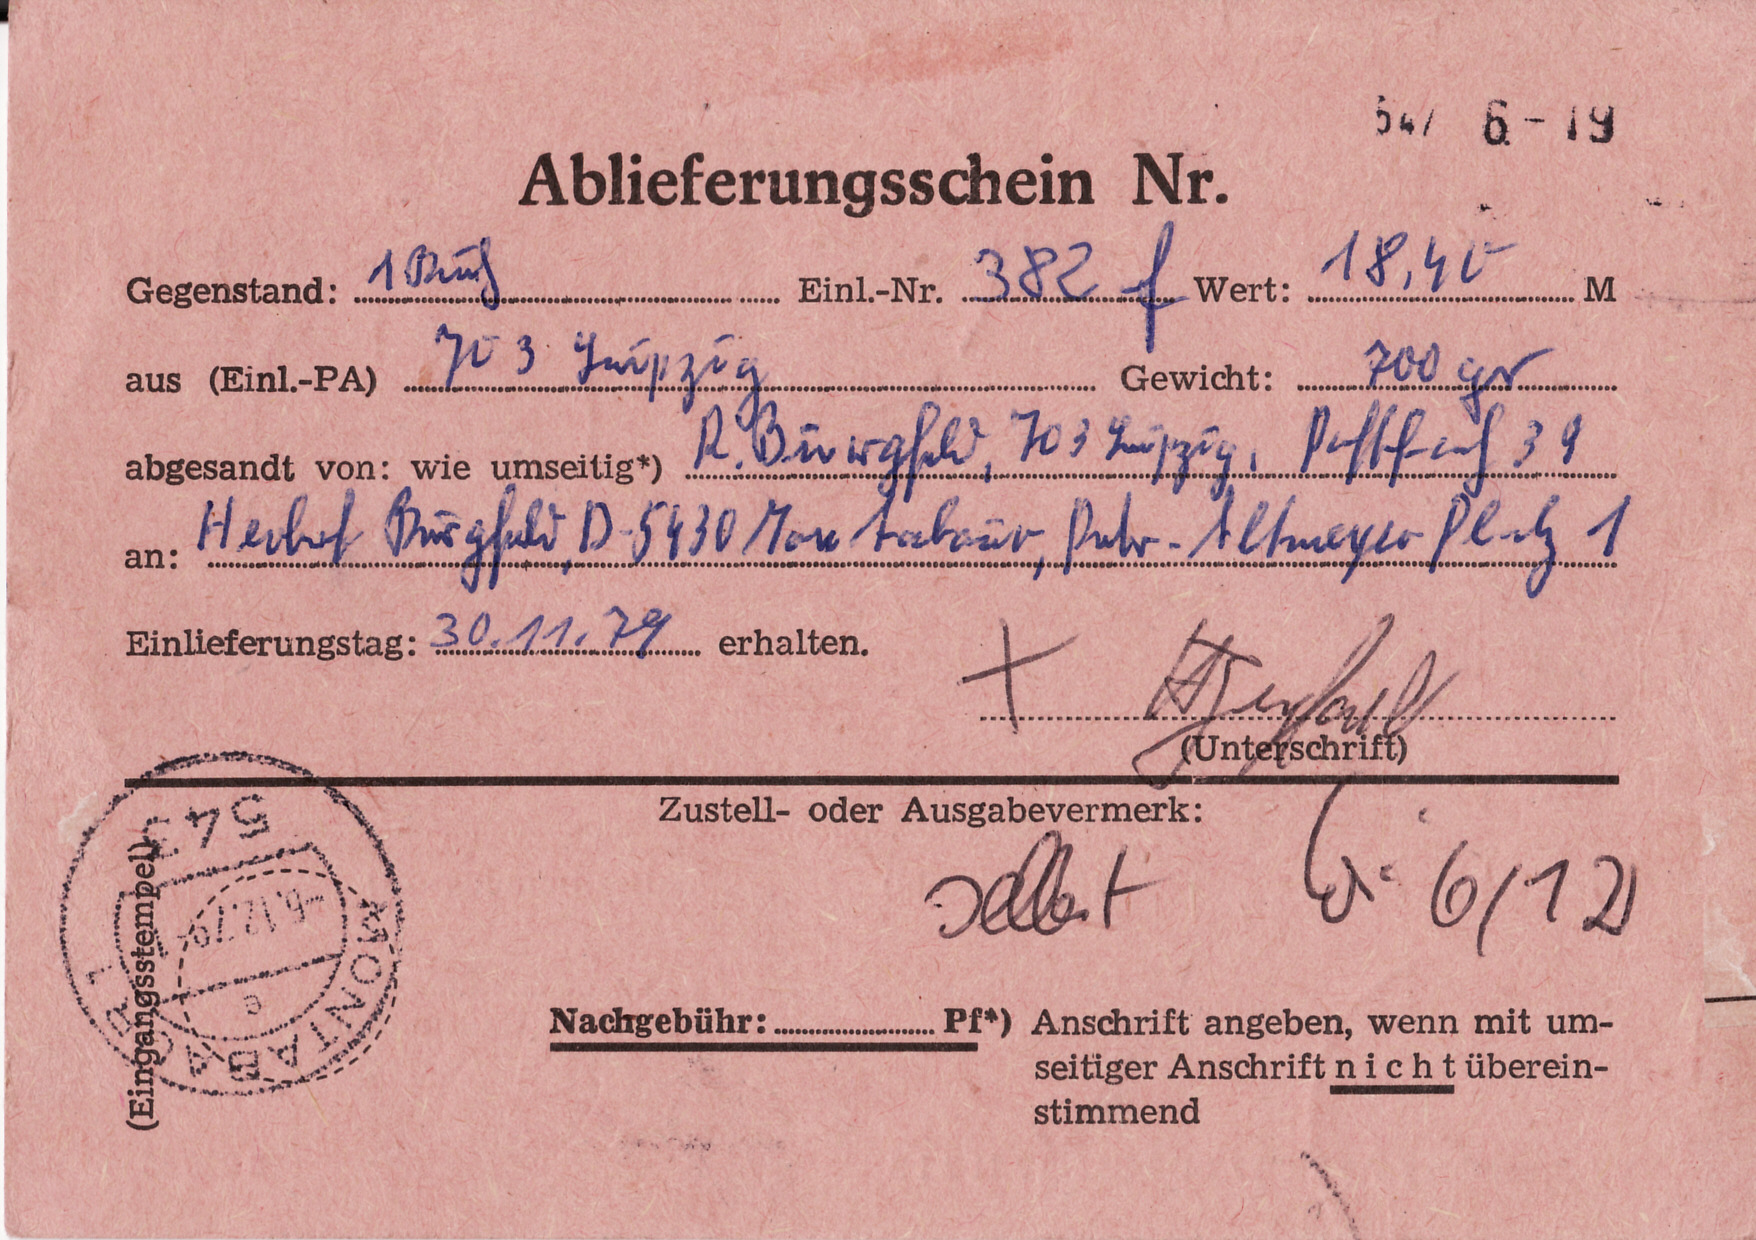 6-19
Ablieferungsschein Nr.
Gegenstand: 1 Buch Einl.-Nr. 382 f Wert: 18,40 M
aus (Einl.-PA) 703 Leipzig Gewicht: 700 gr
abgesandt von: wie umseitig*) R. Burgfeld, 703 Leipzig, Postfach 39
an: Herbert Burgfeld, D-5430 Montabaur, Peter-Altmeyer Platz 1
Einlieferungstag: 30.11.79 erhalten.
(Unterschrift)
Zustell- oder Ausgabevermerk:
selbst 6/12
543
-6.12.79-
MONTABAUR 1
(Eingangsstempel)
Nachgebühr: Pf*) Anschrift angeben, wenn mit um-
seitiger Anschrift nicht überein-
stimmend